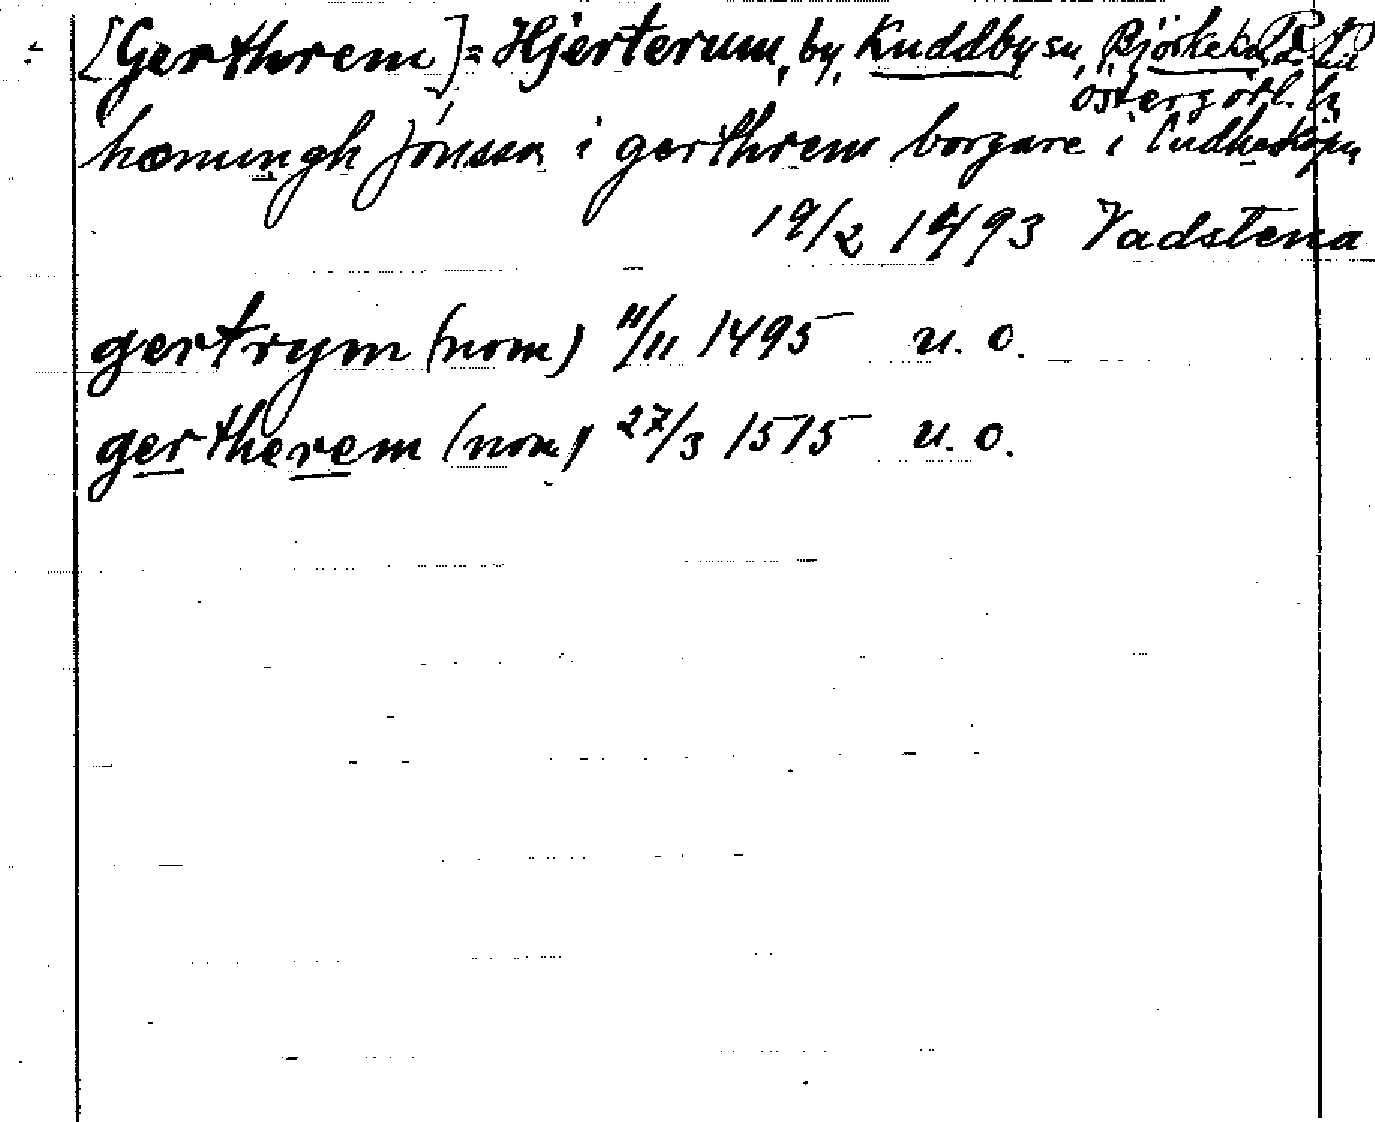 [Gerthrem] = Hjerterum, by, Kuddby sn, Björkek
Östergötl. l.
hæmingh jónssa i gerthrem borgare i
19/2 1493 Vadstena
gertrym (nom) 11/11 1495 u. o.
gertherem (nom) 27/3 1515 u. o.